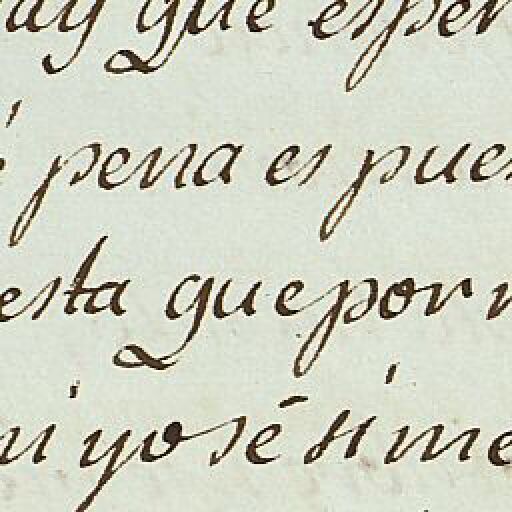 ay que esper
é pena es pues
esta que por n
ni yo sé si me